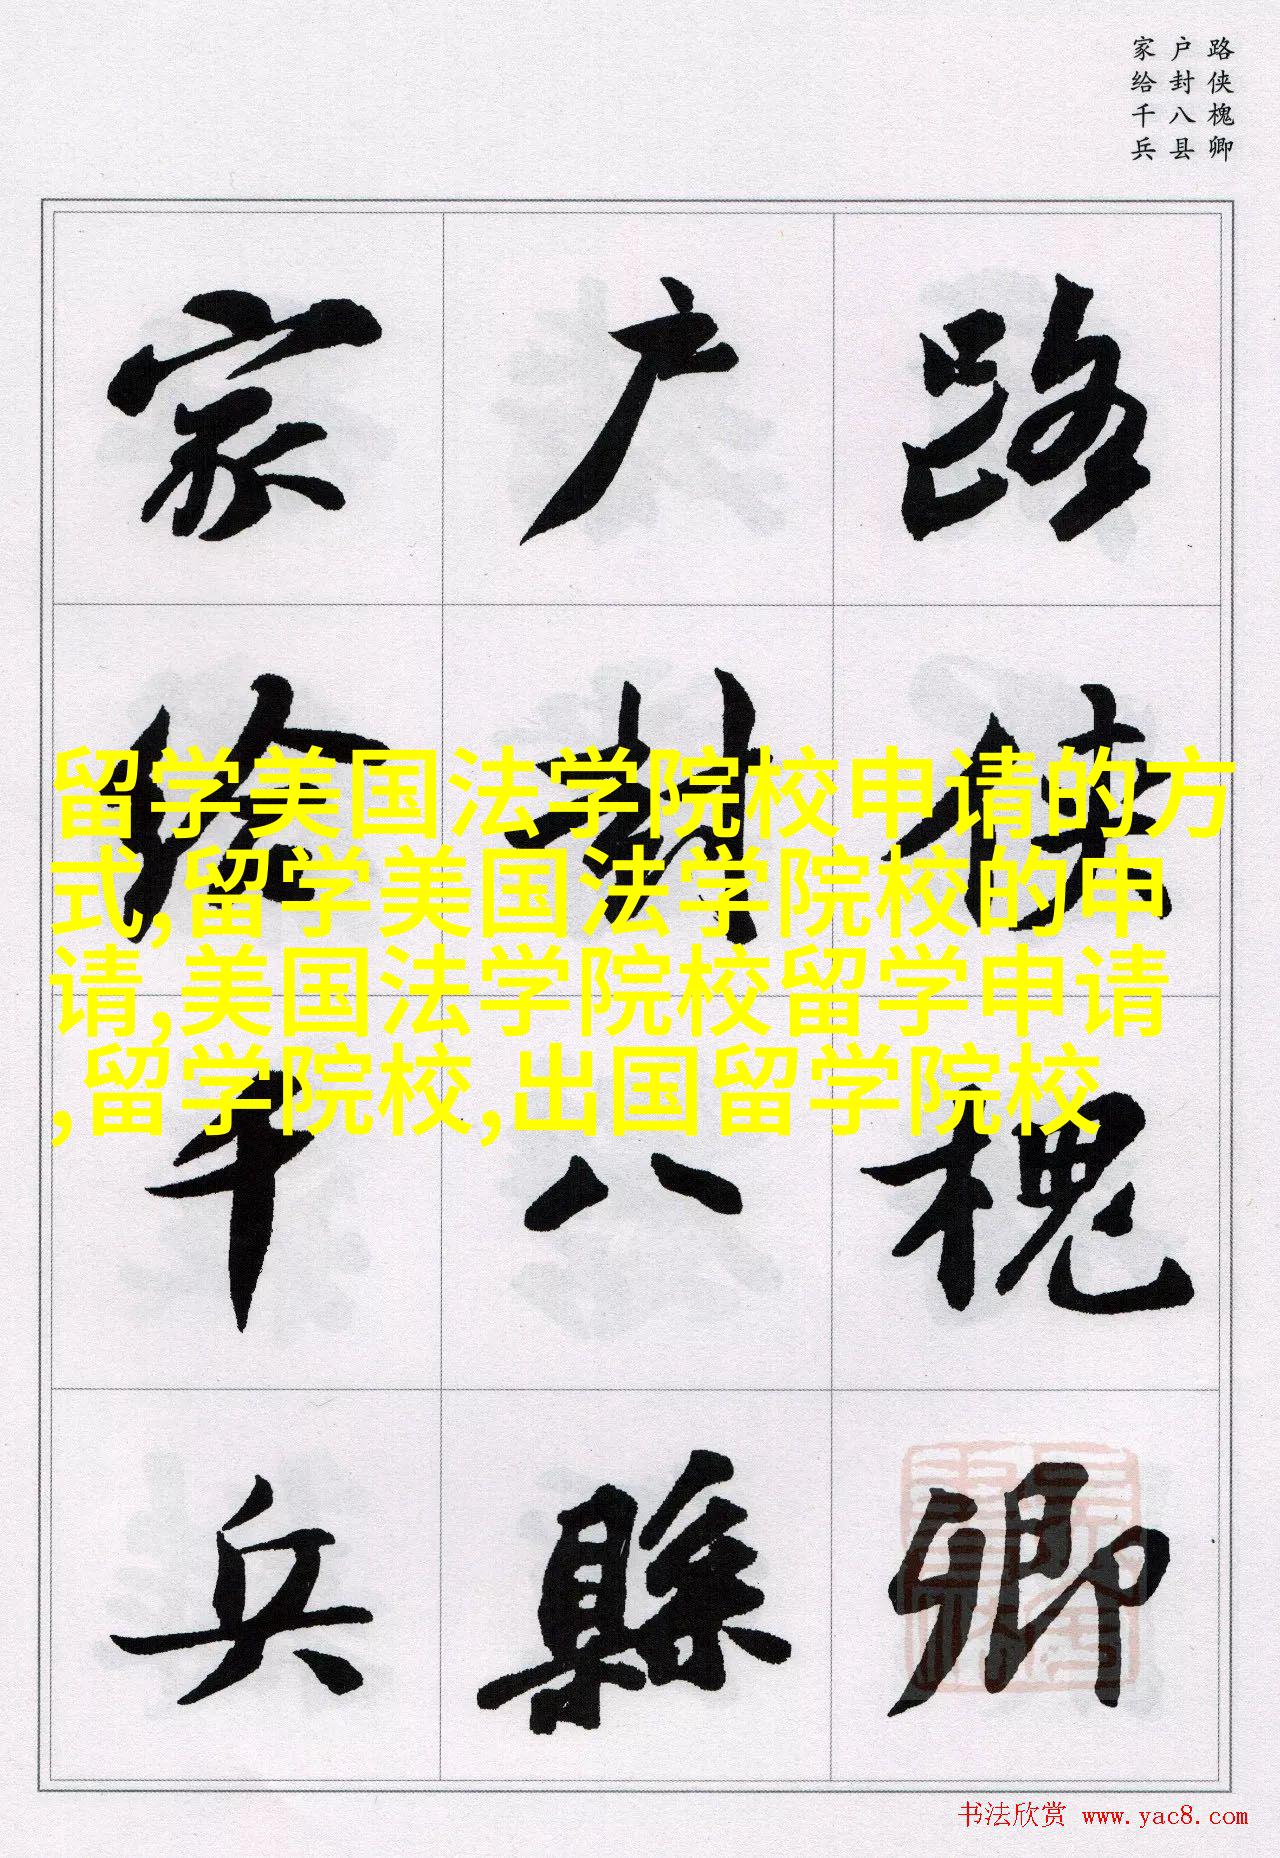 路侠槐卿
户封八县
家给千兵
路侠槐卿
户封八縣
家给千兵
留学美国法学院校申请的方
式,留学美国法学院校的申
请,美国法学院校留学申请
,留学院校,出国留学院校
书法欣赏 www.yac8.com